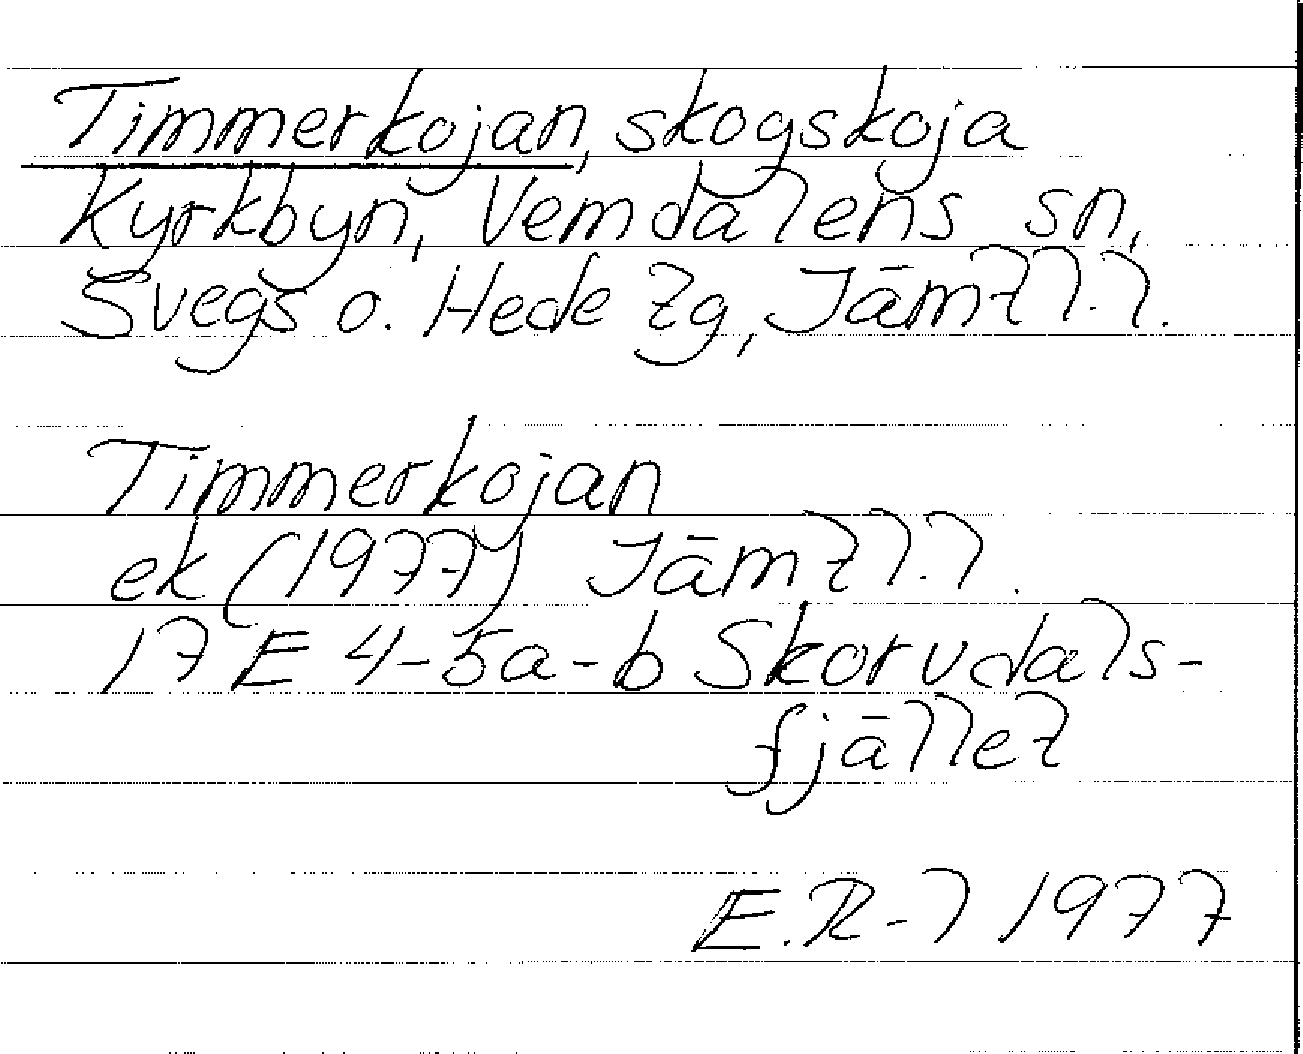 Timmerkojan, skogskoja
Kyrkbyn, Vemdalens sn,
Svegs o. Hede tg, Jämtl.l.
Timmerkojan
ek (1977) Jämtl.l.
17 E 4-5a-b Skorvdals-
fjället
E.R-l 1977